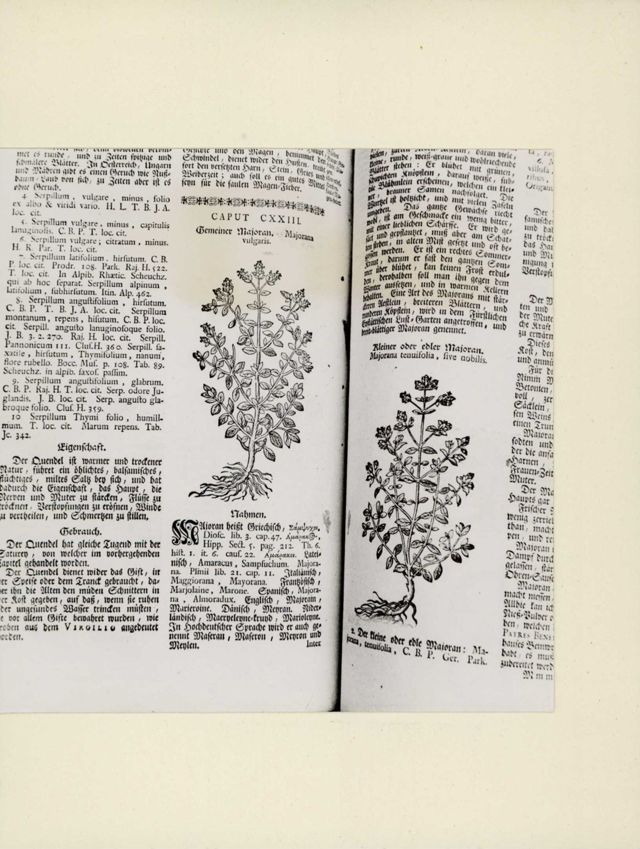 met es runde, und zu Zeiten spitzige und
schmälere Blätter. In Oesterreich, Ungarn
und Mähren gibt es einen Geruch wie Nuß-
baum-Laub von sich, zu Zeiten aber ist es
ohne Geruch.
4. Serpillum, vulgare, minus, folio
ex albo & viridi vario. H. L. T. B. J. A.
loc. cit.
5. Serpillum vulgare, minus, capitulis
lanuginosis. C. B. P. T. loc. cit.
6. Serpillum vulgare; citratum, minus.
H. R. Par. T. loc. cit.
7. Serpillum latifolium, hirsutum. C. B.
P. loc. cit. Prodr. 108. Park. Raj. H. 522.
T. loc. cit. In Alpib. Rhætic. Scheuchz.
qui ab hoc separat. Serpillum alpinum,
latifolium, subhirsutum. Itin. Alp. 462.
8. Serpillum angustifolium, hirsutum.
C. B. P. T. B. J. A. loc. cit. Serpillum
montanum, repens, hirsutum. C. B. P. loc.
cit. Serpill. angusto lanuginosoque folio.
J. B. 3. 2. 270. Raj. H. loc. cit. Serpill.
Pannonicum III. Cluf. H. 360. Serpill. sa-
xatile, hirsutum, Thymifolium, nanum,
flore rubello. Bocc. Mus. p. 108. Tab. 89.
Scheuchz. in alpib. saxof. passim.
9. Serpillum angustifolium, glabrum.
C. B. P. Raj. H. T. loc. cit. Serp. odore Ju-
glandis. J. B. loc. cit. Serp. angusto gla-
broque folio. Cluf. H. 359.
10 Serpillum Thymi folio, humill-
mum. T. loc. cit. Marum repens. Tab.
Jc. 342.
Eigenschaft.
Der Quendel ist warmer und trockener
Natur, führet ein öhlichtes, balsamisches,
flüchtiges, miltes Saltz bey sich, und hat
dadurch die Eigenschaft, das Haupt, die
Nerven und Muter zu stärcken, Flüsse zu
tröcknen, Verstopfungen zu eröfnen, Winde
zu vertheilen, und Schmertzen zu stillen.
Gebrauch.
Der Quendel hat gleiche Tugend mit der
Saturey, von welcher im vorhergehenden
Capitel gehandelt worden.
Der Quendel dienet wider das Gift, in
der Speise oder dem Tranck gebraucht, da-
her ihn die Alten den müden Schnittern in
der Kost gegeben, auf daß, wenn sie ruhen
oder ungesundes Wasser trincken müsten,
sie vor allem Gifte bewahret wurden, wie
droben aus dem VIRGILIO angedeutet
worden.
Gekröse und den Magen, benimmet den
Schwindel, dienet wider den Husten, treibet
fort den versetzten Harn, Stein, Gries und
Weiberzeit; auch soll es ein gutes Mittel
seyn für die faulen Magen-Fieber.
CAPUT CXXIII.
Gemeiner Majoran. Majorana
vulgaris.
Nahmen.
Majoran heißt Griechisch, Σάμψυχον,
Diosc. lib. 3. cap. 47. Ἀμάρακον,
Hipp. Sect. 5. pag. 212. Th. 6.
hist. 1. it. 6. cauf. 22. Ἀμάρακος. Latei-
nisch, Amaracus, Sampsuchum. Majora-
na, Plinii lib. 21. cap. 11. Italiänisch,
Maggiorana, Mayorana. Frantzösisch,
Marjolaine, Marone. Spanisch, Majora-
na, Almoradux. Englisch, Majoram,
Marieroine. Dänisch, Meyran. Nider-
ländisch, Maerveleyne-kruyd, Marioleyne.
In Hochdeutscher Sprache wird er auch ge-
nennt Maseran, Maseron, Meyron und
Meylen.
Inter
wohlriechende
stehen: Er blühet mit grünen,
schuppichten Knöpflein, daraus weisse, sub-
tile Blühmlein erscheinen, welchen ein klei-
ner, brauner Samen nachfolget. Die
Wurtzel ist holzicht, und mit vielen Zaseln
umgeben. Das gantze Gewächse riecht
wol, ist am Geschmacke ein wenig bitter,
mit einer lieblichen Schärfe. Er wird ge-
säet und gepflantzet, muß aber am Schat-
ten, in alten Mist gesetzt und oft be-
gossen werden. Er ist ein rechtes Sommer-
Kraut, darum er fast den gantzen Som-
mer über blühet, kan keinen Frost erdul-
den, derohalben soll man ihn gegen dem
Winter aufsetzen, und in warmen Kellern
behalten. Eine Art des Majorans mit stär-
ckern Aestlein, breitern Blättern, und
rundern Köpflein, wird in dem Fürstlichen
Eystätischen Lust-Garten angetroffen, und
rund-blättiger Majoran genennet.
Kleiner oder edler Majoran.
Majorana tenuifolia, sive nobilis.
2. Der kleine oder edle Majoran: Ma-
jorana, tenuifolia, C. B. P. Ger. Park.